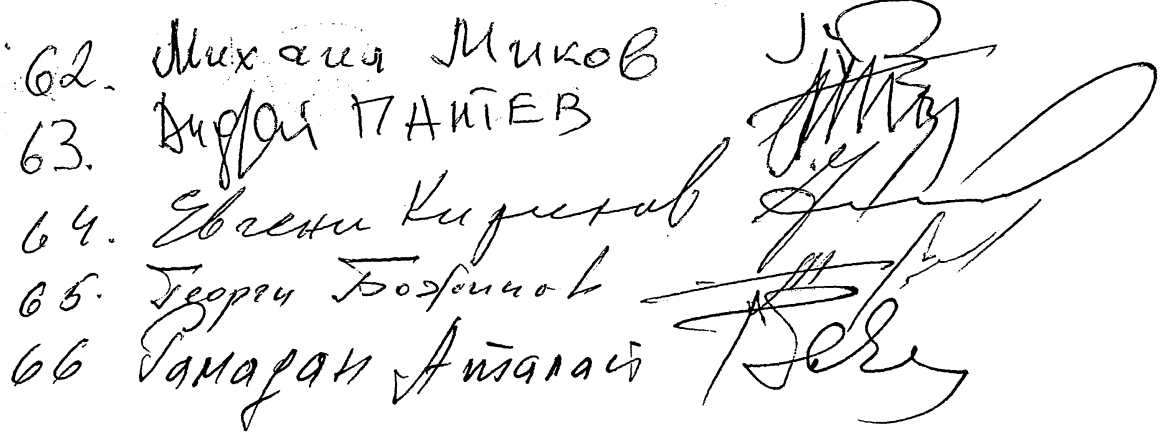 62. Михаил Миков
63. Андрей ПАНТЕВ
64. Евгени Кирилов
65. Георги Божинов
66 Рамадан Аталай